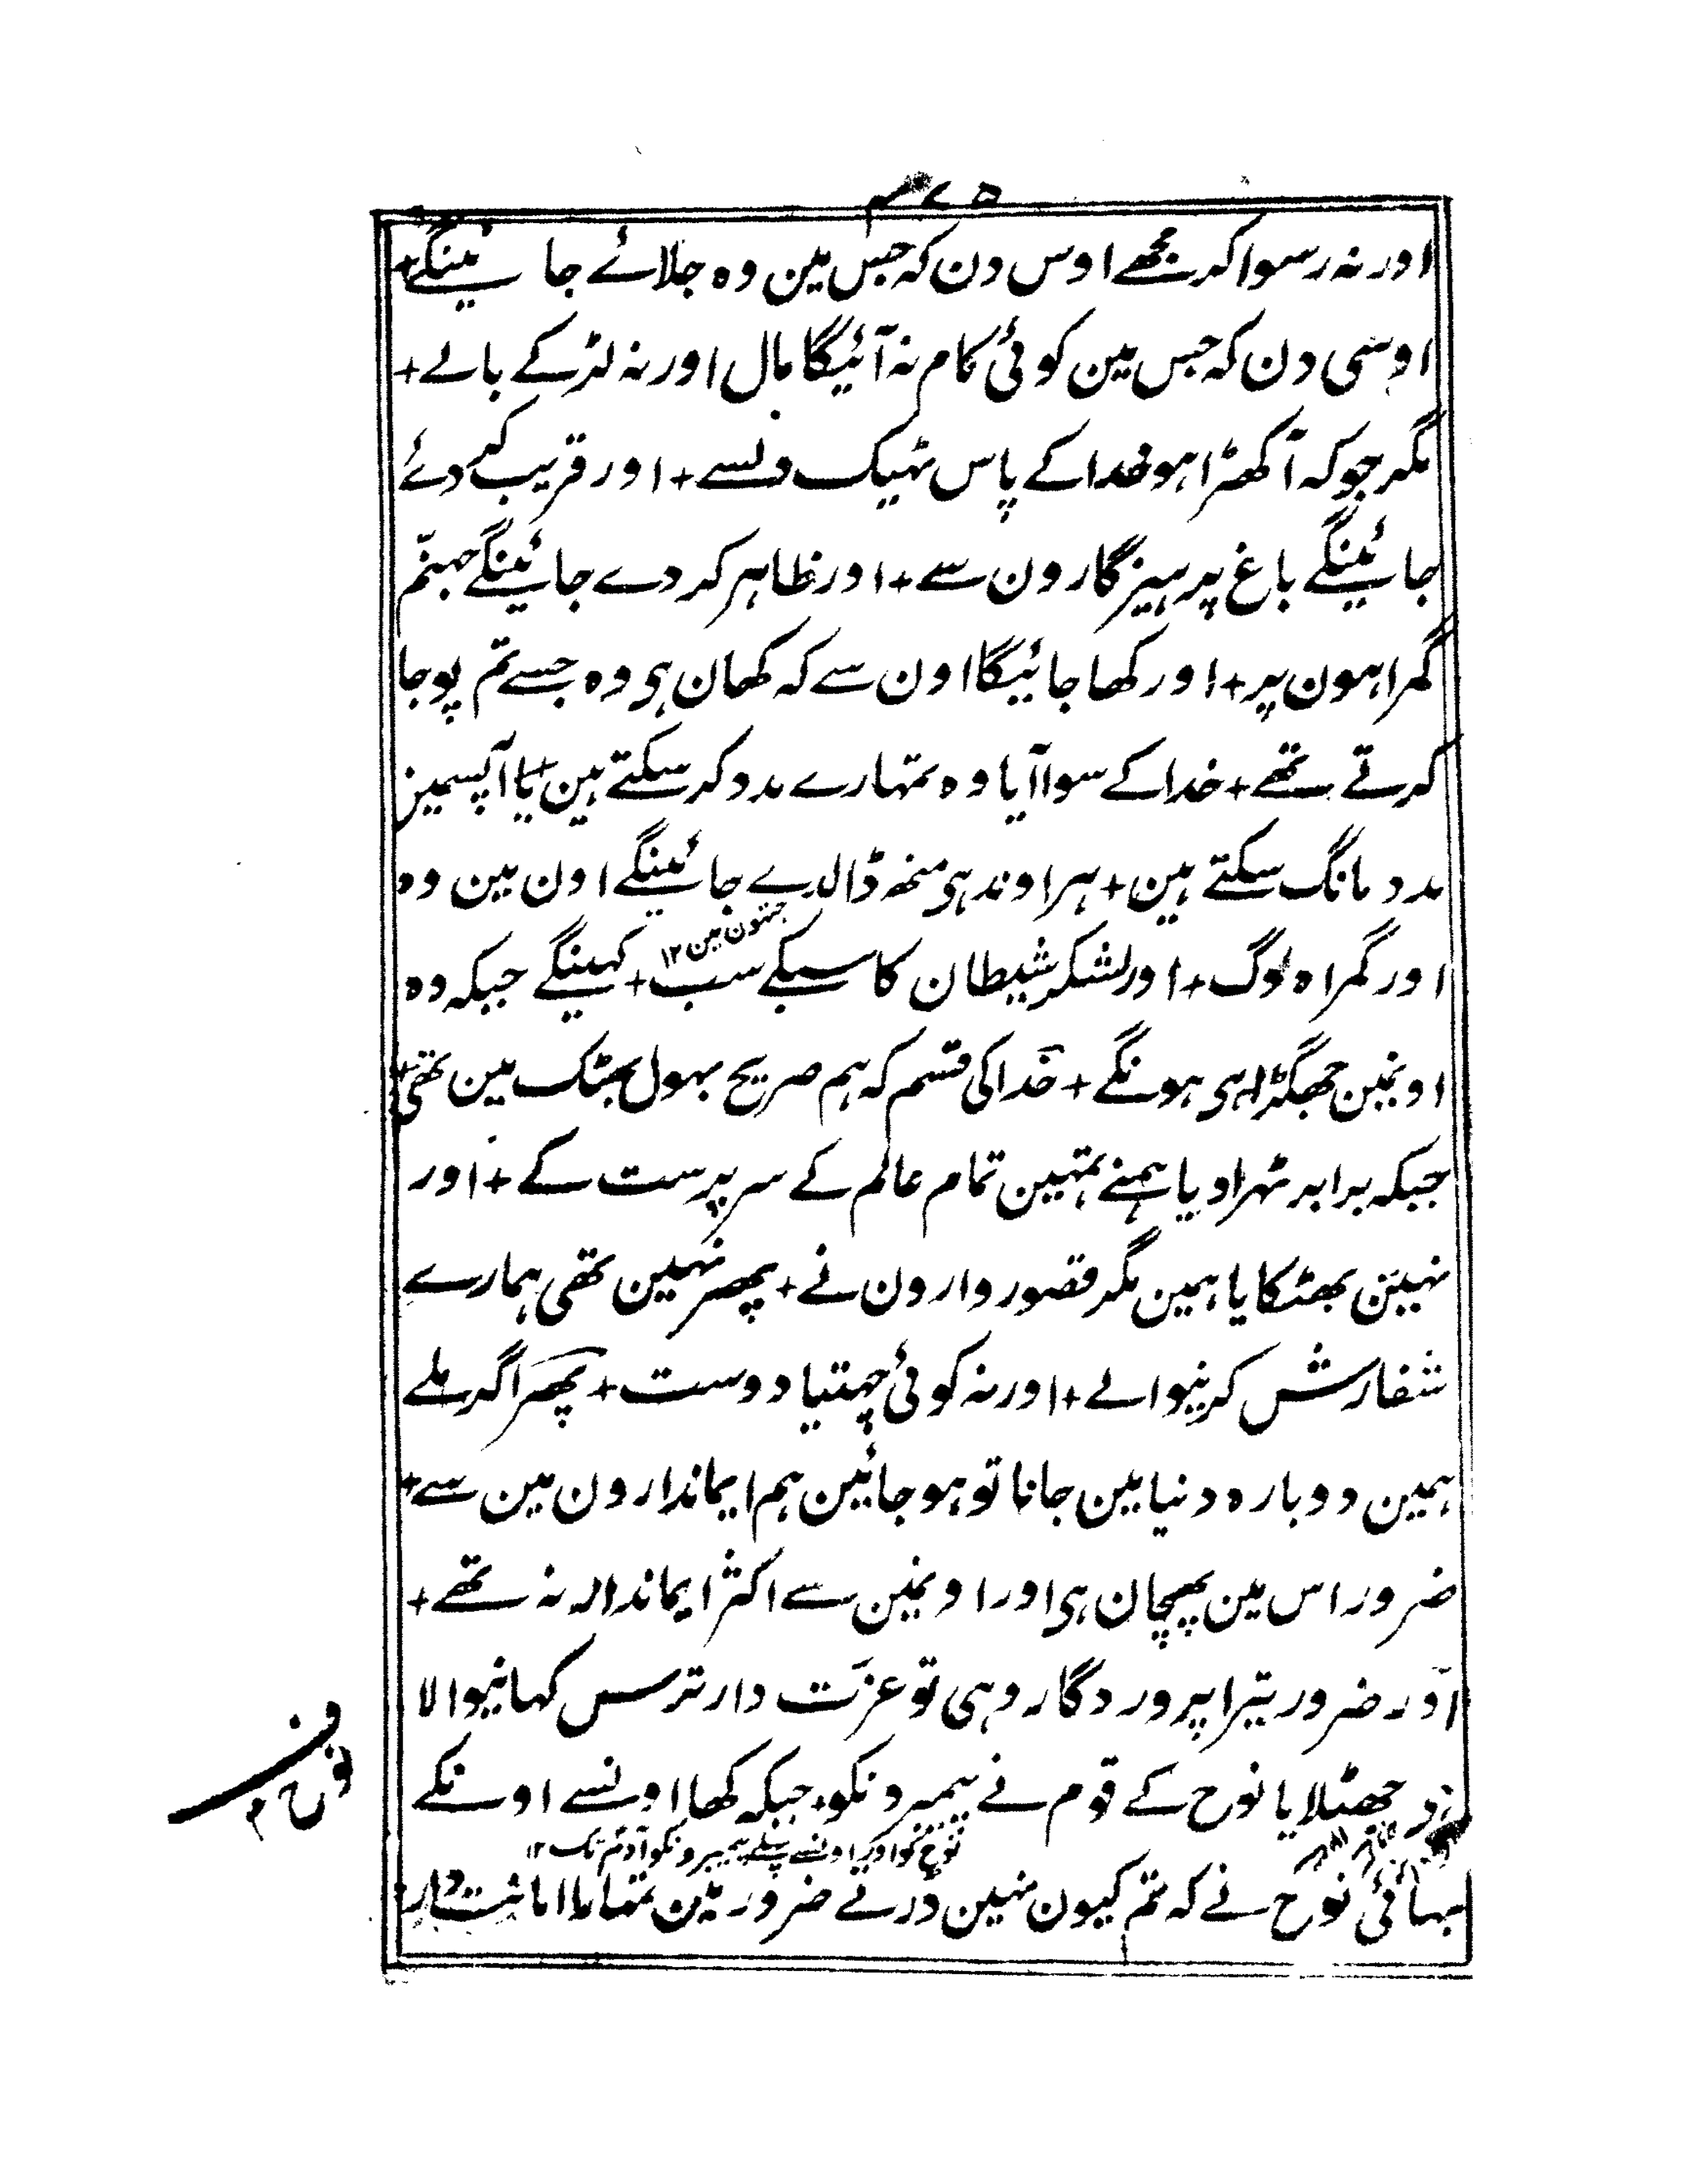 اور نہ رسوا کر مجھے اوس دن کہ جس مین وہ جلائے جا ئینگے+
اوسی دن کہ جس مین کوئی کام نہ آئیگا مال اور نہ لڑکے بالے+
مگر جو کہ آ کھڑا ہو خدا کے پاس ٹھیک دلسے+اور قریب کر دئے
جائینگے باغ پرہیزگارون سے+اور ظاہر کر دے جائینگے جہنّم
گمراہون پر+اور کھا جائیگا اون سے کہ کھان ہی وہ جسے تم پوجا
کرتے تھے+خدا کے سوا آیا وہ تمہارے مدد کر سکتے ہین+یا آپسمین
مدد مانگ سکتے ہین+پھر اوندہی منھ ڈالدے جائینگے اون مین وہ
جہنون مین ۱۲
اور گمراہ لوگ+اور لشکر شیطان کا سبکے سب+کہینگے جبکہ وہ
اونمین جھگڑا ہی ہونگے+خدا کی قسم کہ ہم صریح بہول بھٹک مین تھی+
جبکہ برابر ٹہرا دیا ہمنے تمہین تمام عالم کے سرپرست کے+اور
نہین بھٹکایا ہمین مگر قصوروارون نے+پھر نہین تھی ہمارے
شفارش کرنیوالے+اور نہ کوئی چہتیا دوست+پھر اگر ملے
ہمین دوبارہ دنیا مین جانا تو ہو جائین ہم ایماندارون مین سے+
ضرور اس مین پہچان ہی اور اونمین سے اکثر ایماندار نہ تھے+
اور ضرور تیرا پروردگار وہی تو عزّت دار ترس کہانیوالا
جھٹلایا نوح کے قوم نے پیمبرونکو+جبکہ کھا اونسے اونکے
نوح کو اور اونسے پہلے پیمبرونکو آدم تک ۱۲
بہائی نوح نے کہ تم کیون نہین ڈرتے ضرور مین تمہارا امانت دار